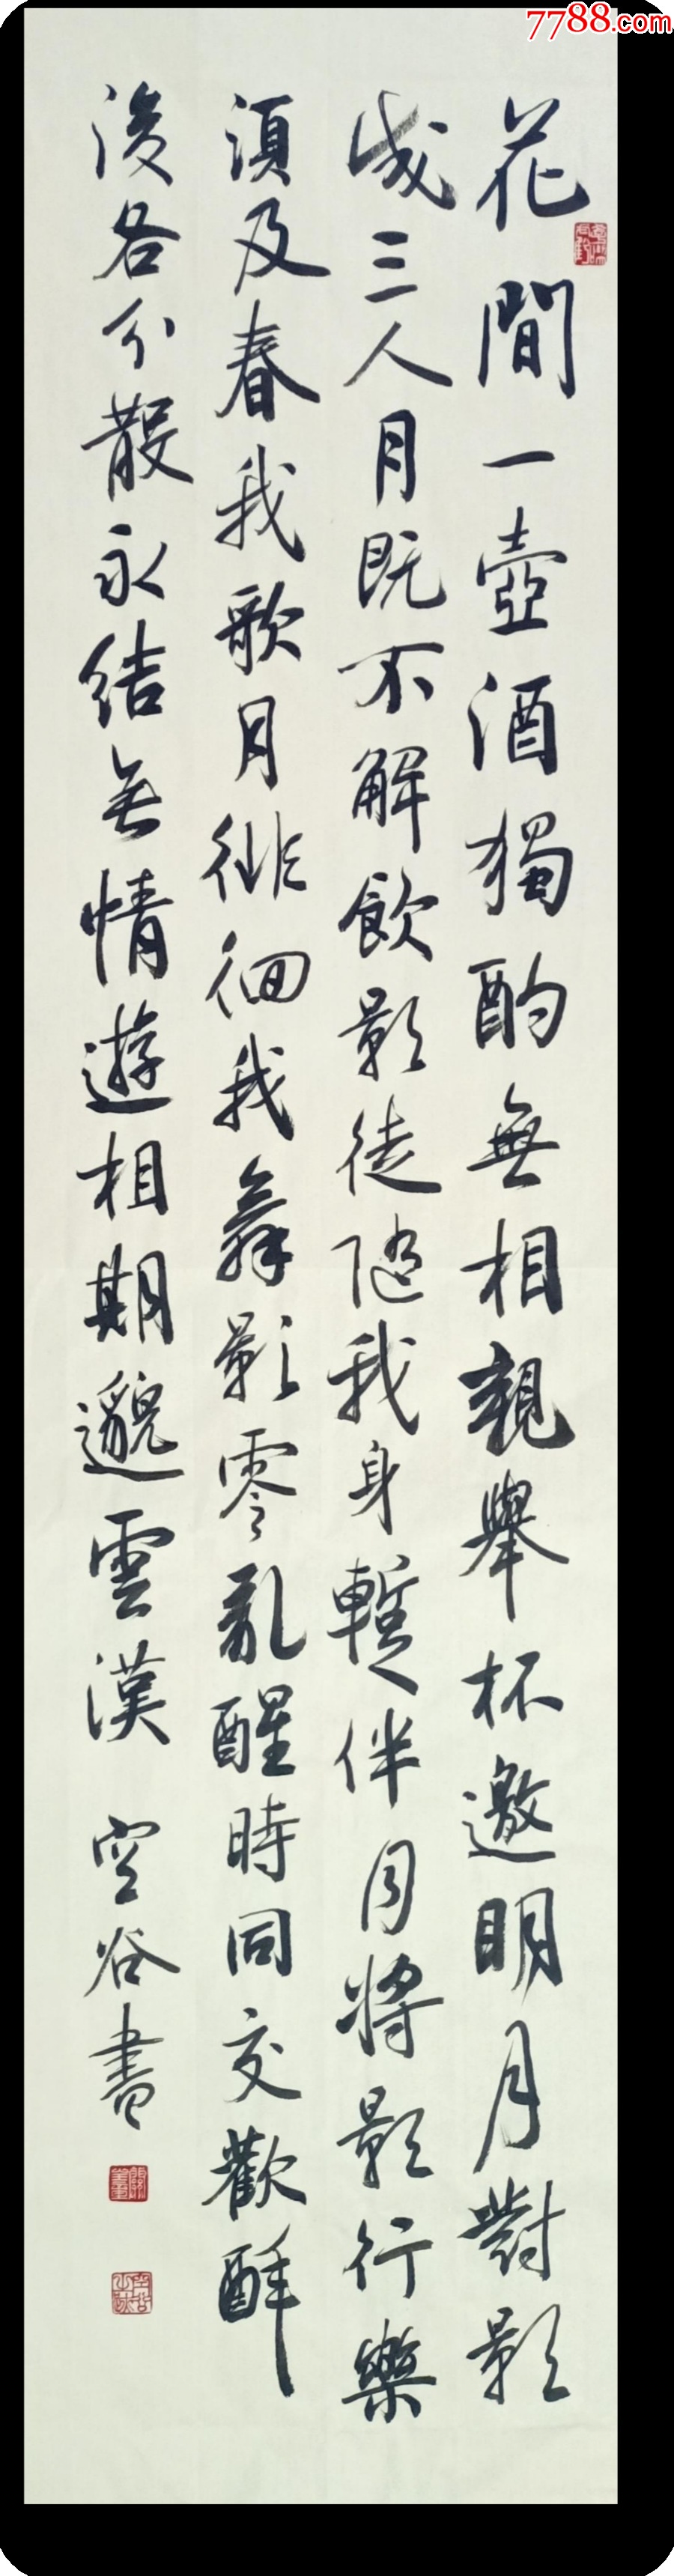 7788.com
花間一壺酒獨酌無相親舉杯邀明月對影
成三人月既不解飲影徒隨我身暫伴月將影行樂
須及春我歌月徘徊我舞影零亂醒時同交歡醉
後各分散永結無情遊相期邈雲漢 空谷書